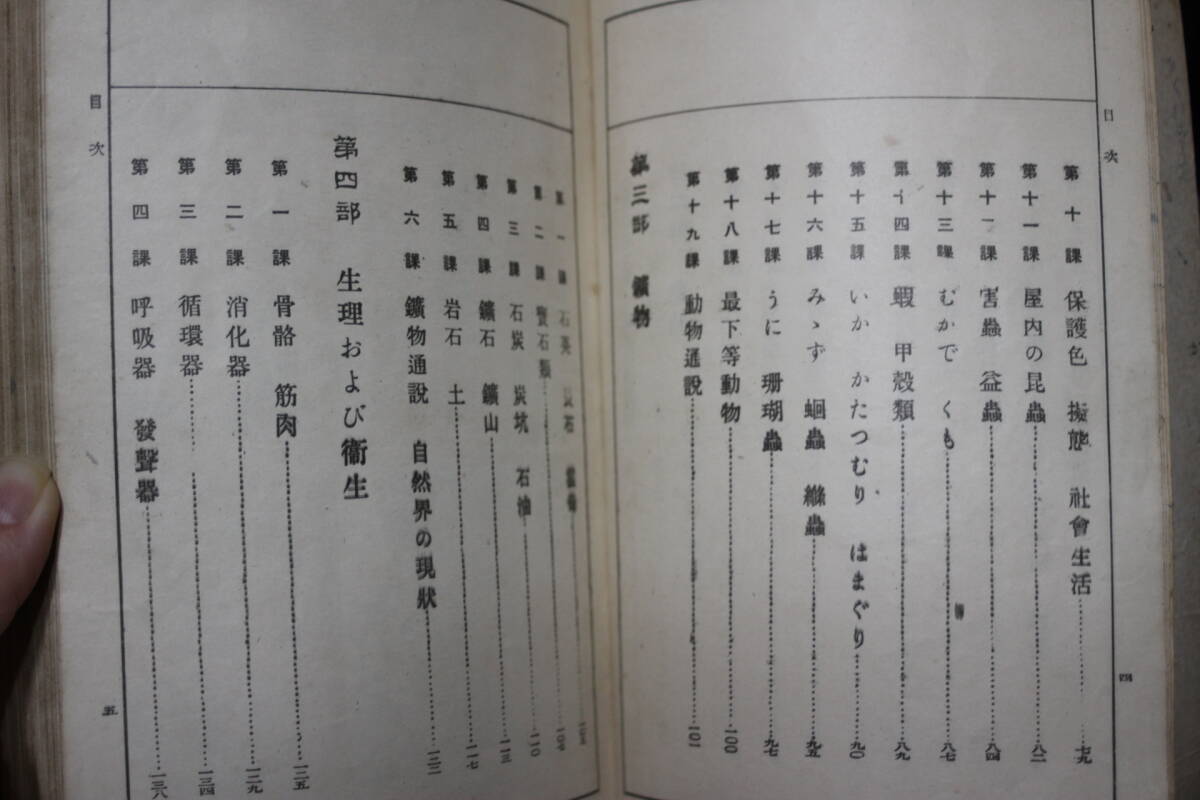 目次
第十課 保護色 擬態 社會生活 七九
第十一課 屋内の昆蟲 八二
第十二課 害蟲 益蟲 八四
第十三課 むかで くも 八七
第十四課 蝦 甲殼類 八九
第十五課 いか かたつむり はまぐり 九〇
第十六課 みゝず 蛔蟲 絛蟲 九五
第十七課 うに 珊瑚蟲 九七
第十八課 最下等動物 一〇〇
第十九課 動物通說 一〇一
第三部 鑛物
四
第一課 石英 長石 雲母
第二課 寶石類
第三課 石炭 炭坑 石油 一一〇
第四課 鑛石 鑛山 一一三
第五課 岩石 土 一一七
第六課 鑛物通說 自然界の現狀 一二二
第四部 生理および衞生
第一課 骨骼 筋肉 一二五
第二課 消化器 一二九
第三課 循環器 一三四
第四課 呼吸器 發聲器 一三八
目次
五